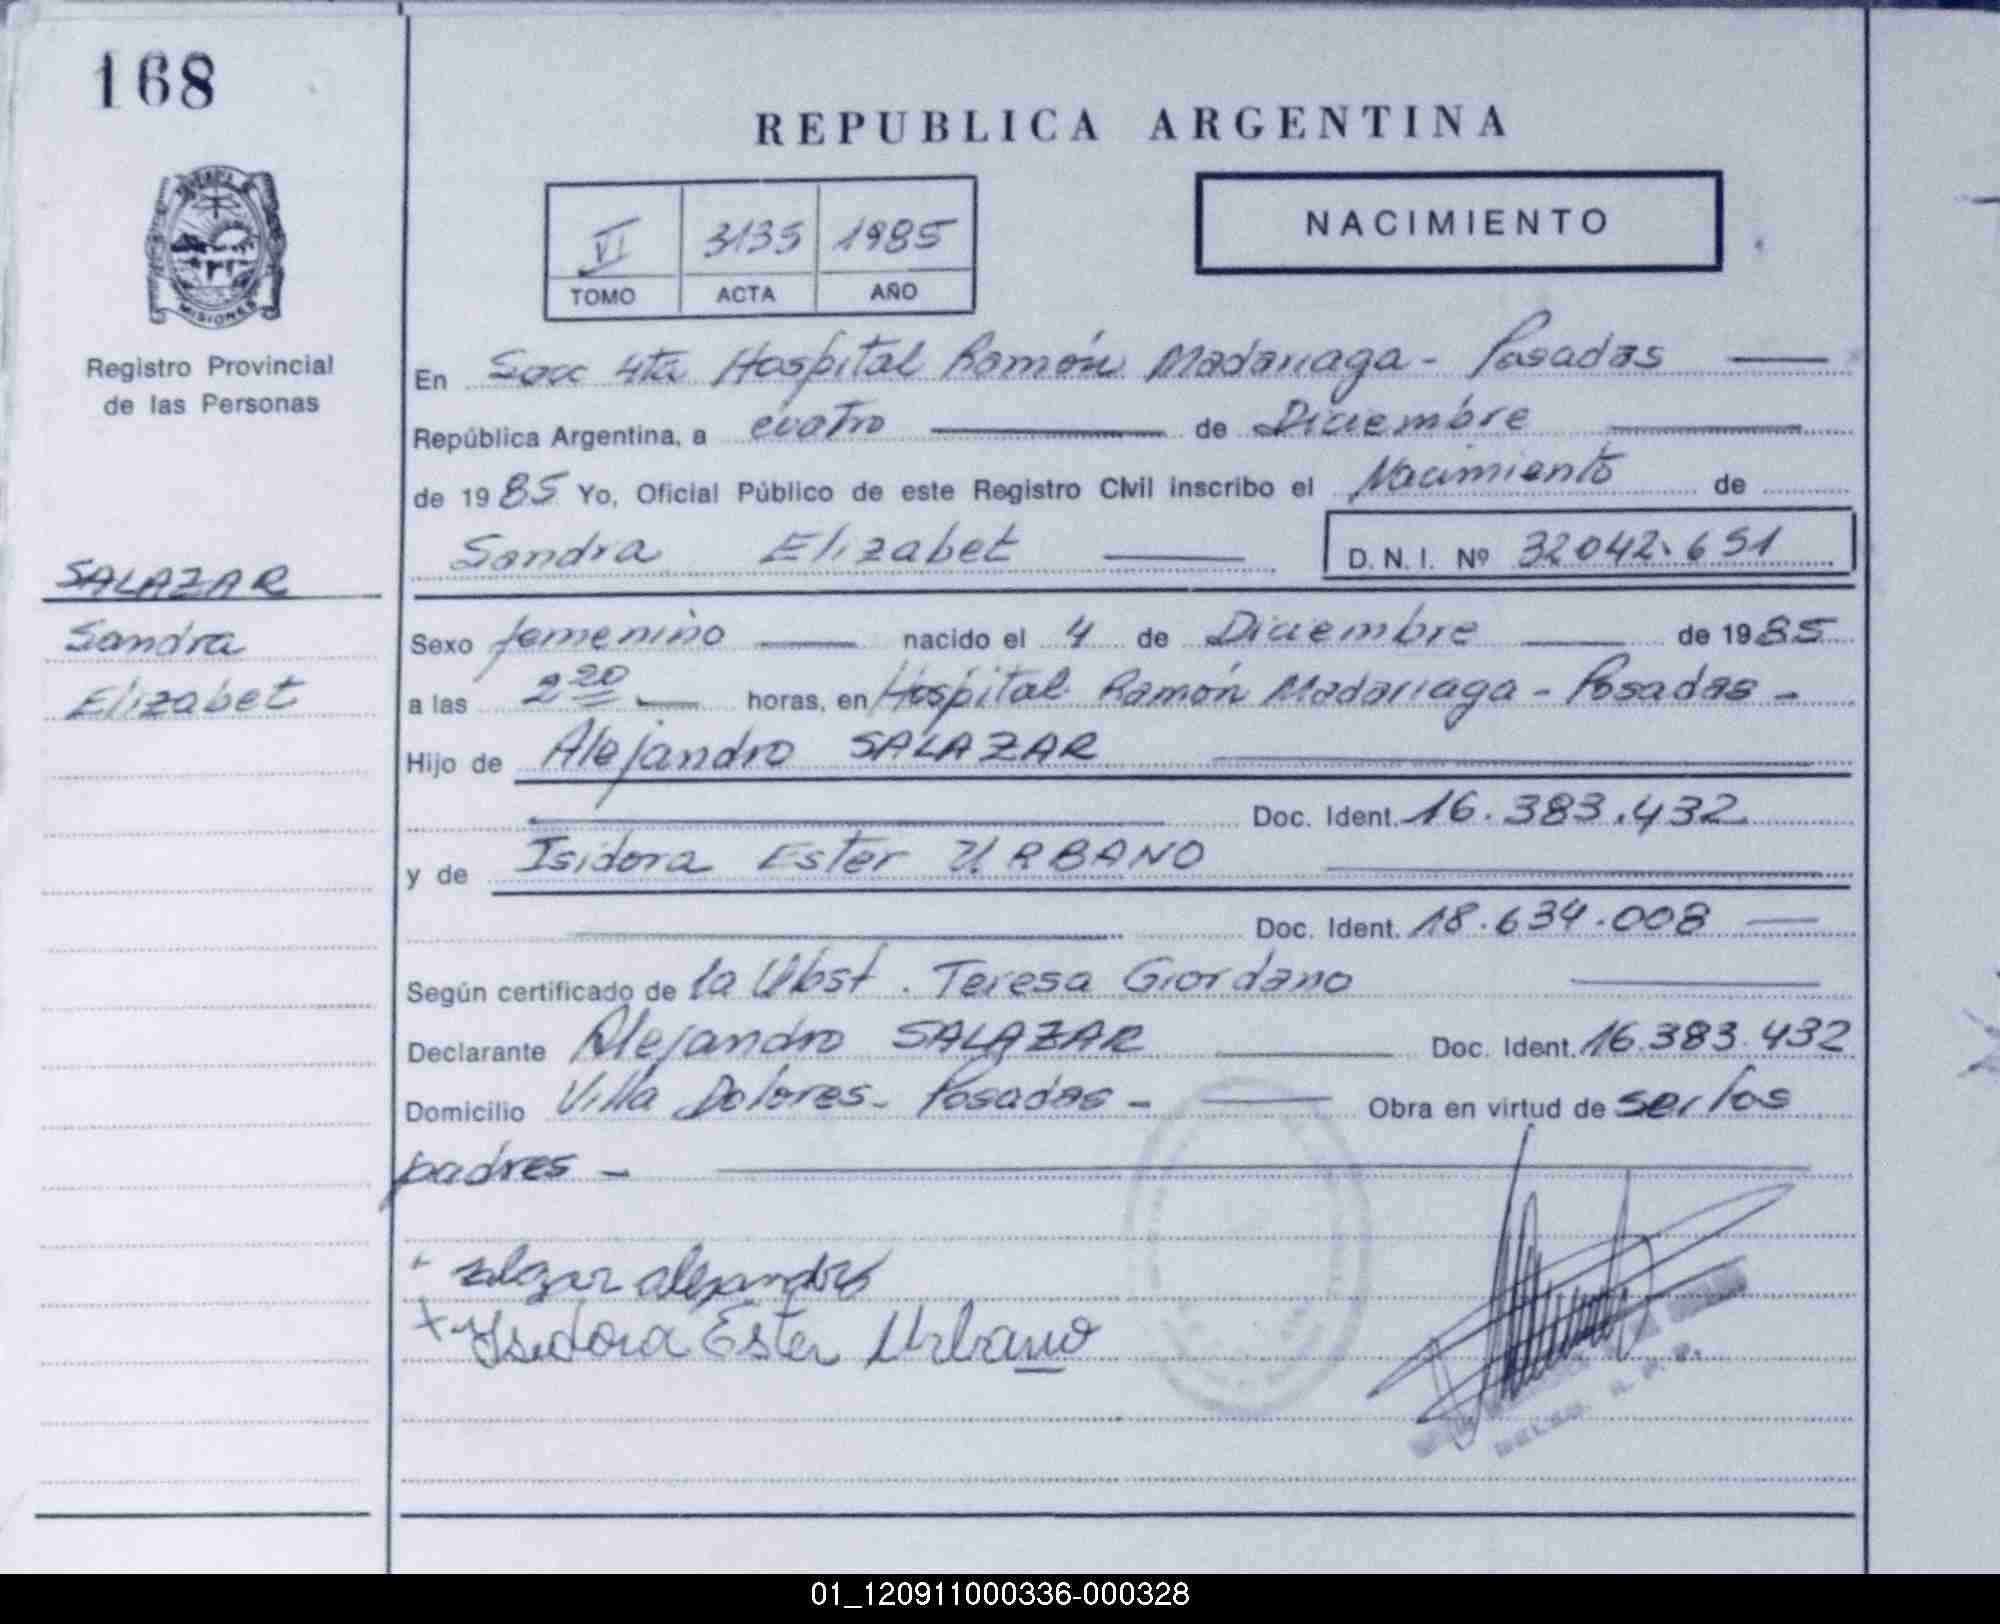 168
REPUBLICA ARGENTINA
NACIMIENTO
VI 3135 1985
TOMO ACTA AÑO
MISIONES
Registro Provincial
de las Personas
SALAZAR
Sandra
Elizabet
En Secc 4ta Hospital Ramón Madariaga - Posadas
República Argentina, a cuatro de Diciembre
de 1985 Yo, Oficial Público de este Registro Civil inscribo el Nacimiento de
Sandra Elizabet D. N. I. Nº 32042.651
Sexo femenino nacido el 4 de Diciembre de 1985
a las 2 20 horas, en Hospital Ramón Madariaga - Posadas -
Hijo de Alejandro SALAZAR
Doc. Ident. 16.383.432
y de Isidora Ester URBANO
Doc. Ident. 18.634.008
Según certificado de la Obst. Teresa Giordano
Declarante Alejandro SALAZAR Doc. Ident. 16.383.432
Domicilio Villa Dolores - Posadas - Obra en virtud de ser los
padres -
Salazar alejandro
+ Isidora Ester Urbano
01_120911000336-000328